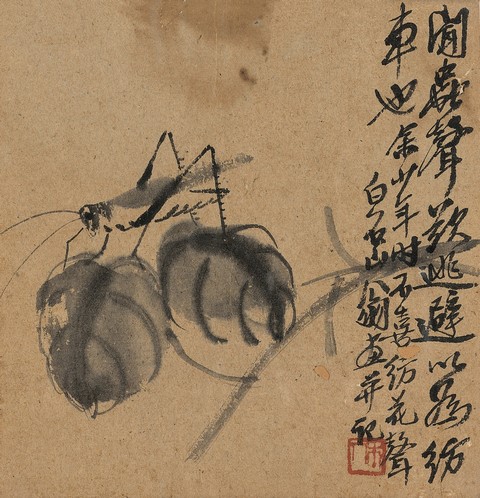 聞蟲聲欲逃避以爲紡
車也余少年时不喜紡花聲
白石山翁畫并記
木人